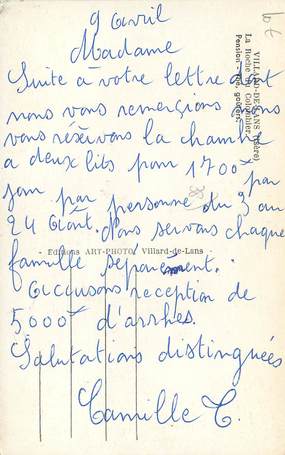 9 Avril
Madame
Suite à votre lettre dont
nous vous remerçions nous
vous réservons la chambre
a deux lits pour 1700 F par
jour par personne du 3 au
24 Août. Nous servons chaque
famille séparement.
Accusons reception de
5000 F d'arrhes.
Salutations distinguées
Camille T.
VILLARD-DE-LANS (Isère)
La Roche du Colombier
Pension - goûter
Editions ART-PHOTO, Villard-de-Lans
38